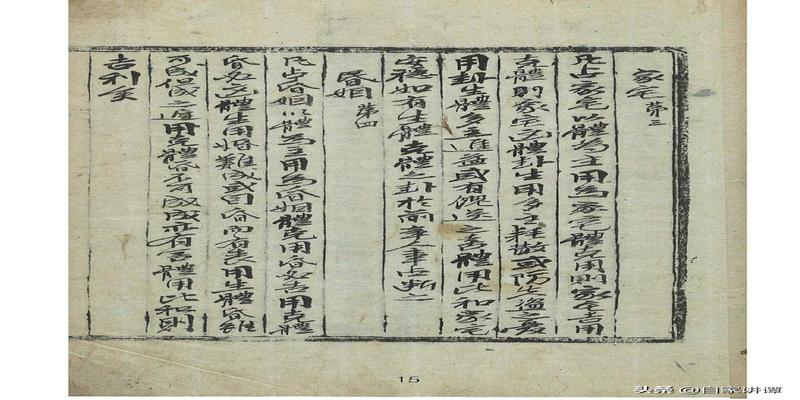 家宅第三
凡占家宅以體為主用為家宅體克用則家宅吉用
克體則家宅凶體卦生用多主耗散或防失盜之憂
用卦生體多主進益或有饋送之喜體用比和家宅
安穩如有生體克體之卦於前章人事占斷之
昏姻第四
凡占昏姻以體為主用為昏姻體克用昏必吉用克體
昏必凶體生用婚難成或因昏而有失用生體昏雖
可成之用克體昏不可成成亦有害體用比和則
吉利矣
15
头条 @自家讲谭